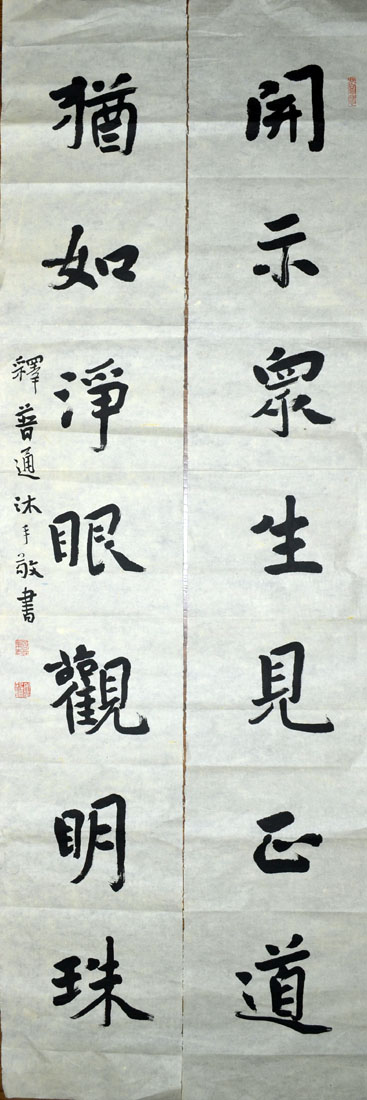 開示衆生見正道
猶如淨眼觀明珠
釋普通沐手敬書